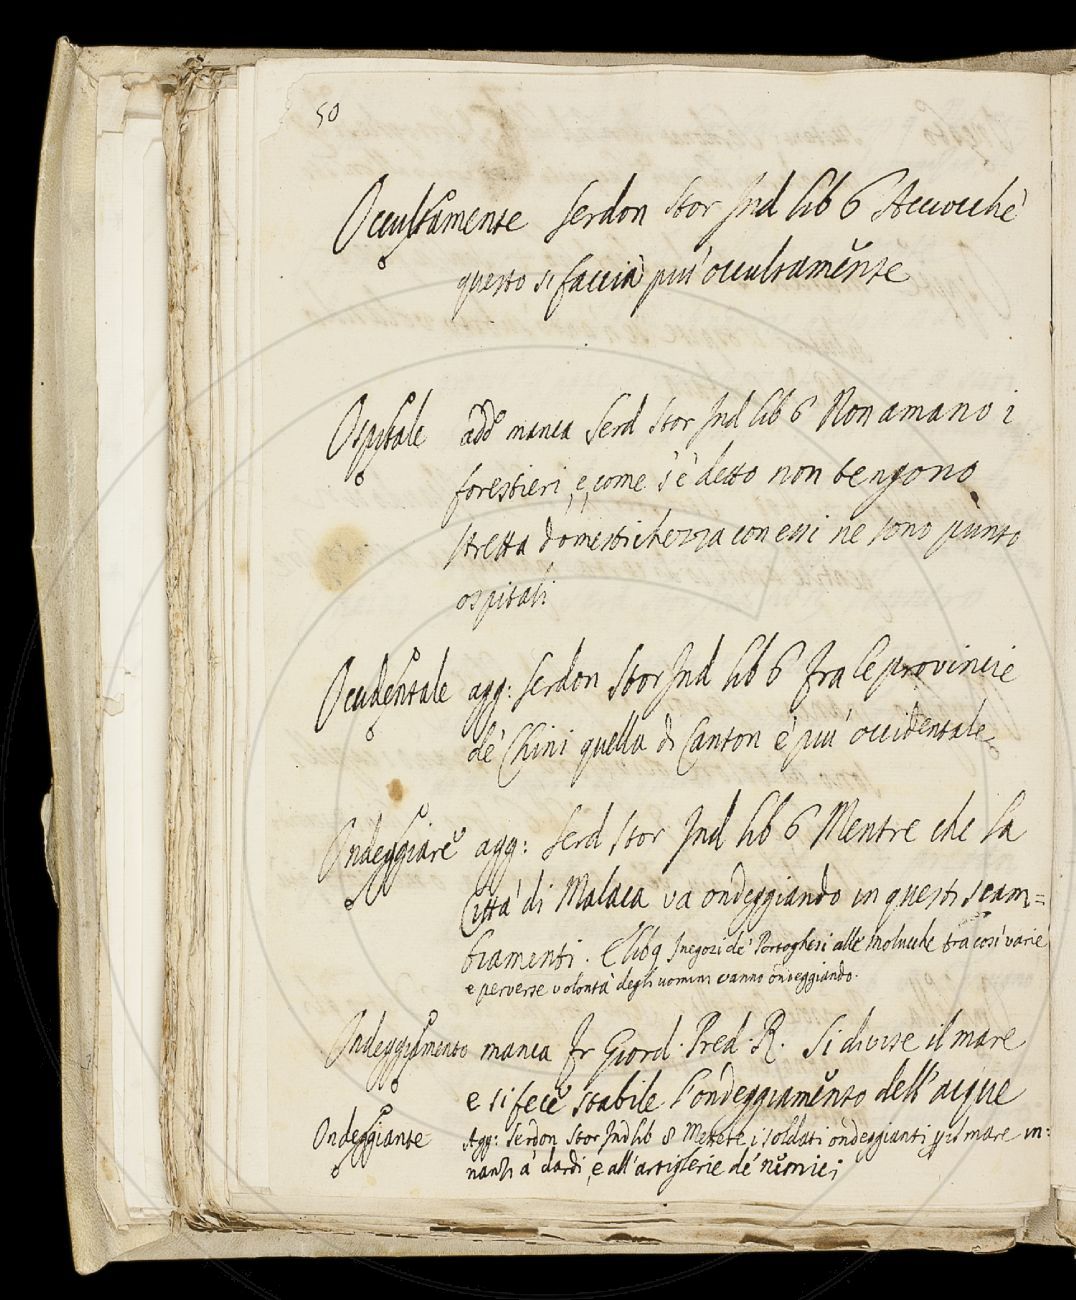 50
Occultamente Serdon Stor Ind lib 6 Acciocchè
questo si faccia più occultamente
Ospitale add manca Serd Stor Ind lib 6 Non amano i
forestieri, e, come s'è detto non tengono
stretta domestichezza con essi ne sono punto
ospitali
Occidentale agg: Serdon Stor Ind lib 6 Fra le provincie
de' Chini quella di Canton è più occidentale
Ondeggiare agg: Serd Stor Ind lib 6 Mentre che la
Città di Malaca va ondeggiando in questi scam=
biamenti. E lib 9 I negozi de' Portoghesi alle Molucche tra così varie
e perverse volontà degli uomini vanno ondeggiando.
Ondeggiamento manca Fr Giord. Pred. R. Si divise il mare
e si fece stabile l'ondeggiamento dell'acque
Ondeggiante Agg: Serdon Stor Ind lib 8 Mettete i soldati ondeggianti il mare in=
nanzi a' dardi, e all'artiglierie de' nemici